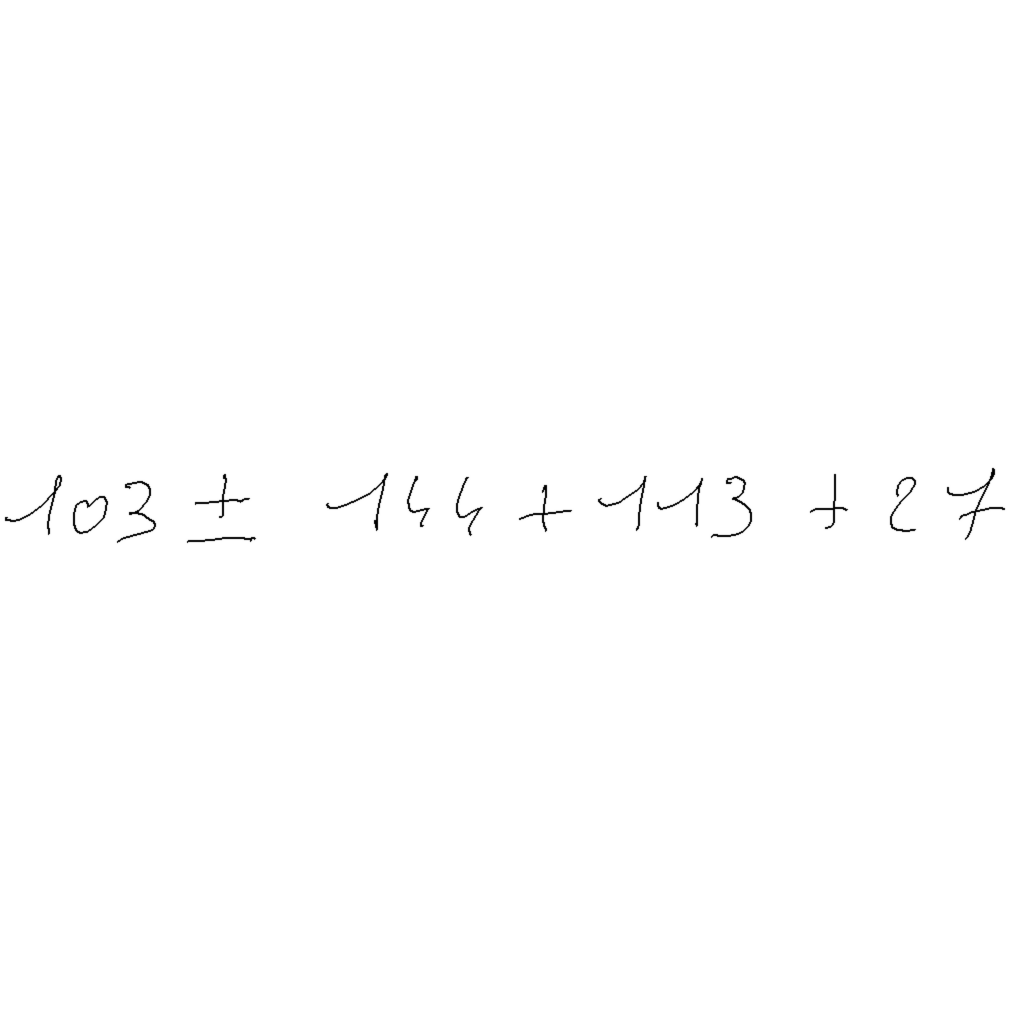 103 ± 144 + 113 + 27